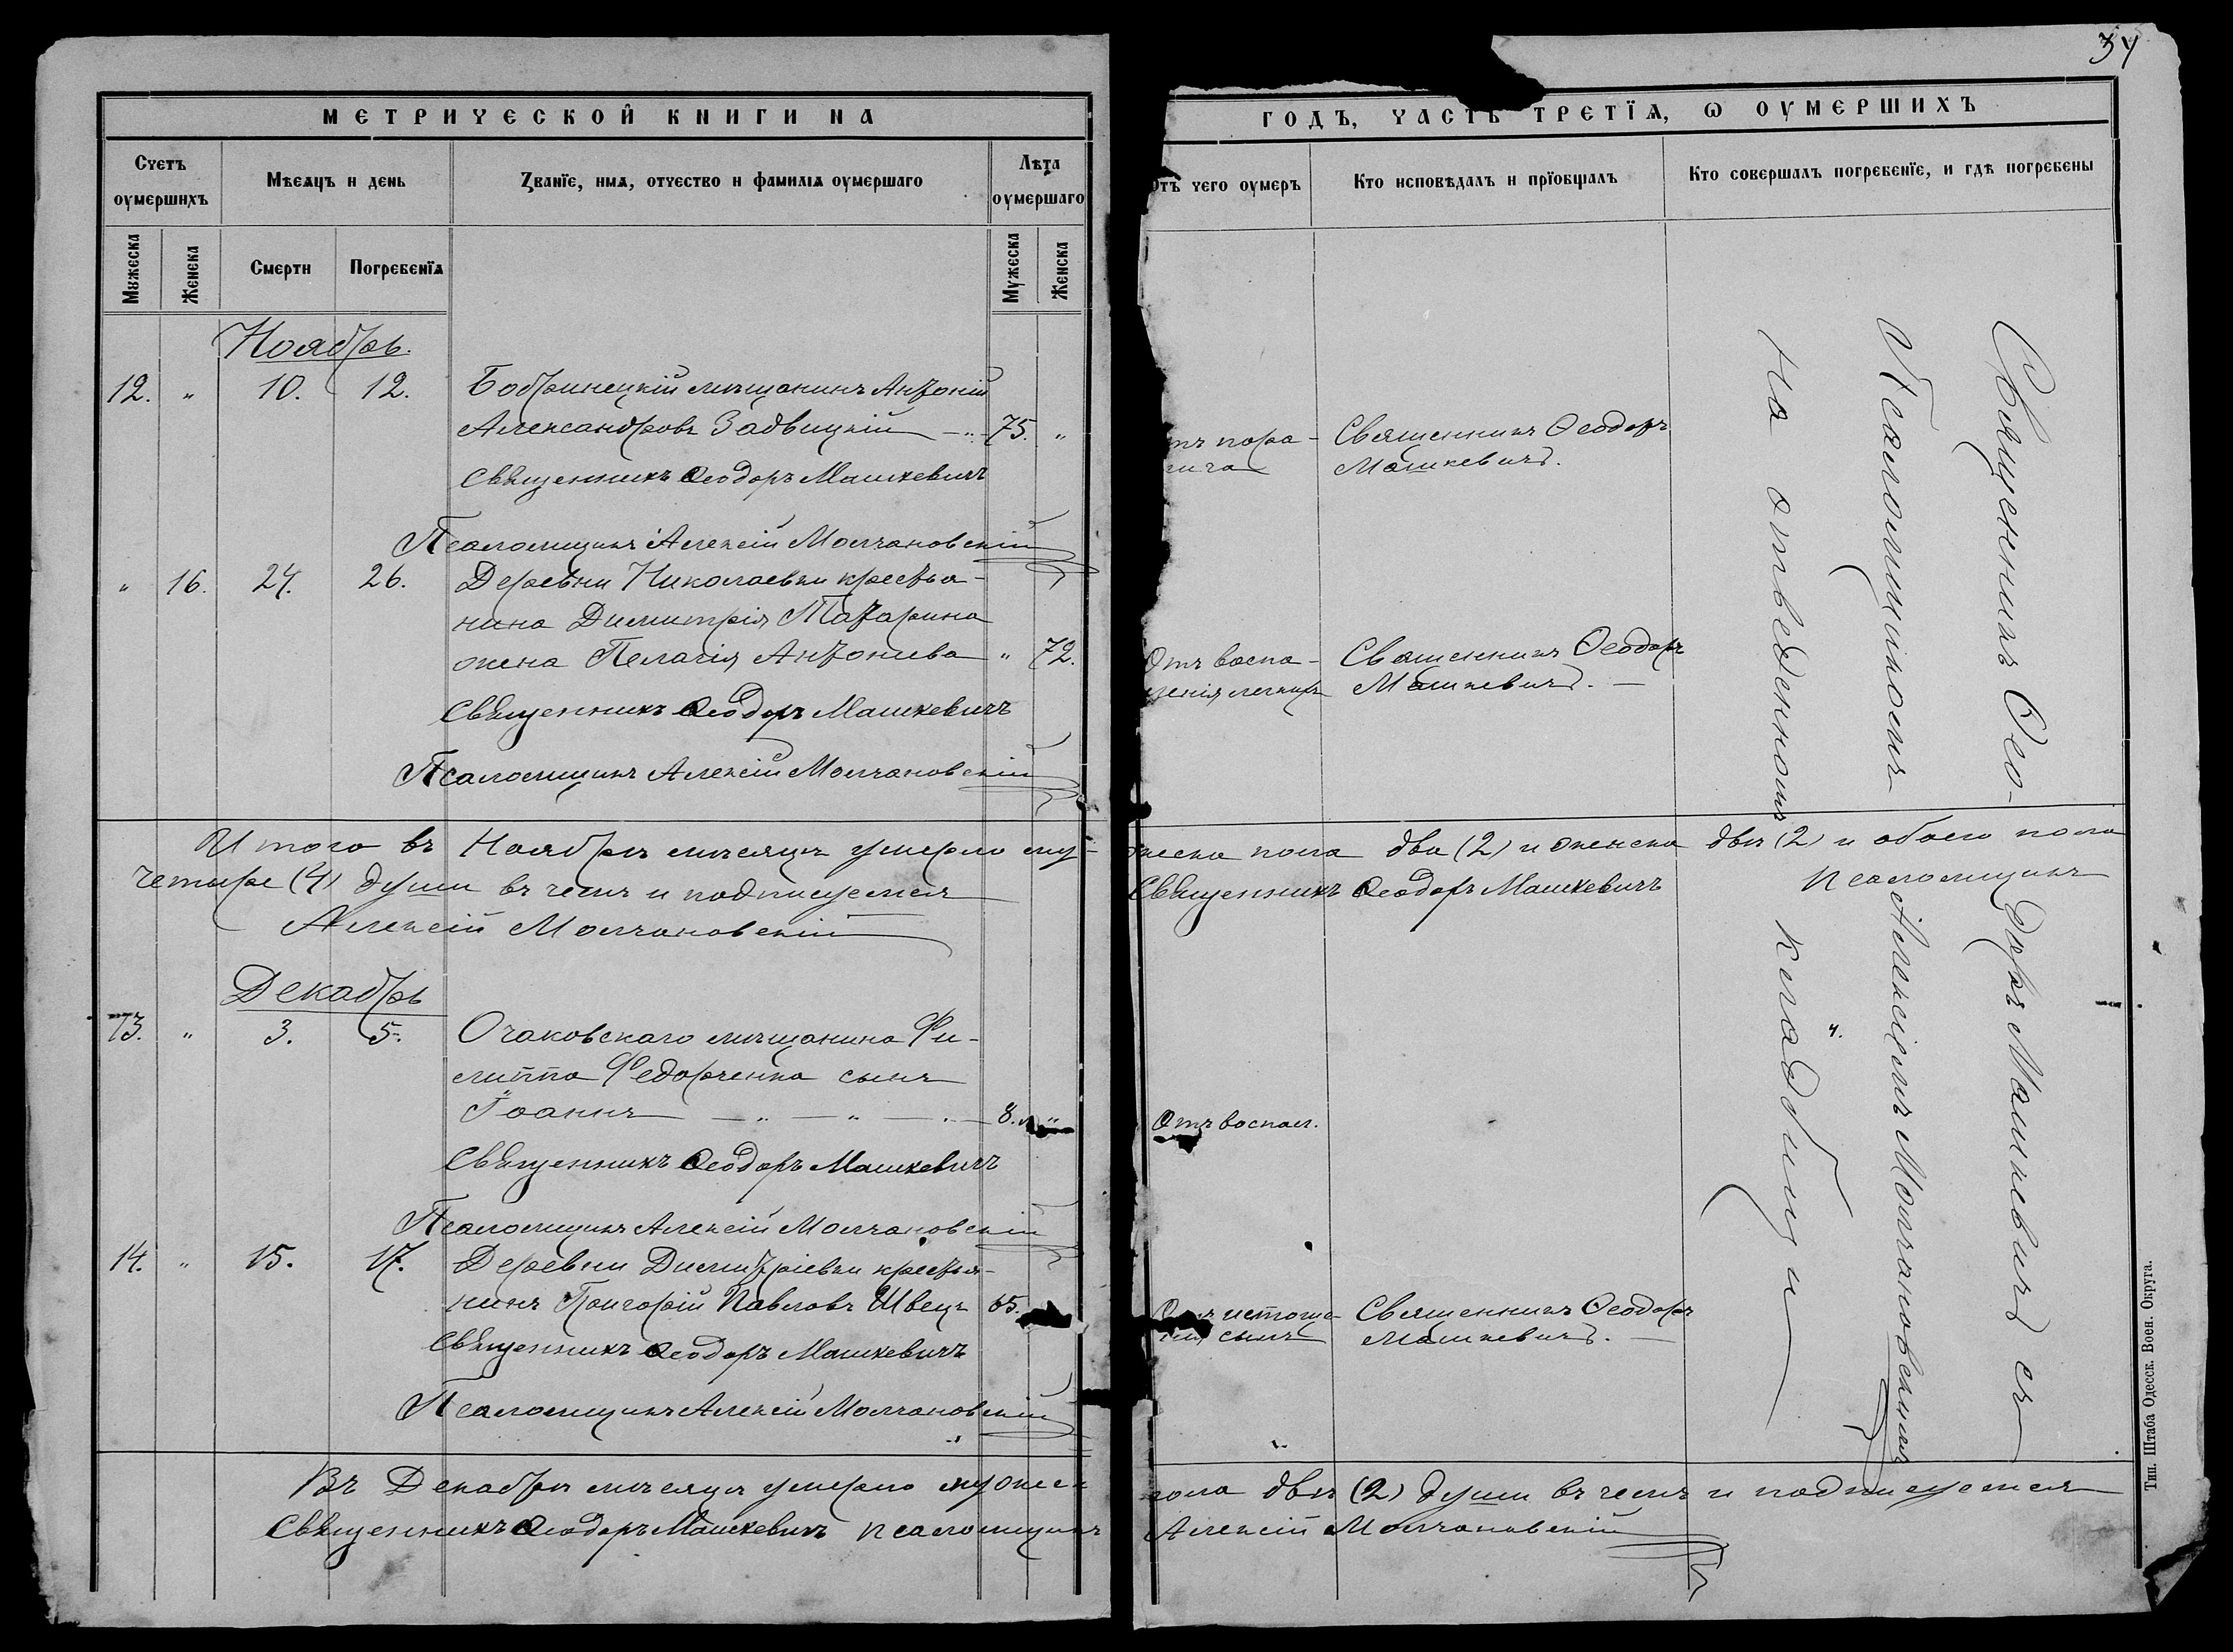 34
МЕТРИЧЕСКОЙ КНИГИ НА
ГОДЪ, ЧАСТЬ ТРЕТІѦ, Ѡ ОУМЕРШИХЪ
Счетъ оумершихъ
Мѣсяцъ и день
Званїе, имѧ, отчество и фамиліѧ оумершаго
Лѣта оумершаго
Отъ чего оумеръ
Кто исповѣдалъ и прїобщалъ
Кто совершалъ погребенїе, и гдѣ погребены
Мужеска
Женска
Смерти
Погребенїѧ
Мужеска
Женска
Ноябрь.
12. " 10. 12. Бобринецкій мѣщанинъ Антоній
Александровъ Задвицкій — " — 75. "
Священникъ Ѳеодоръ Машкевичъ
Псаломщикъ Алексій Молчановскій
тъ пора-
лича
Священникъ Ѳеодоръ
Машкевичъ.
" 16. 24. 26. Деревни Николаевки крестья-
нина Димитрія
жена Пелагія Антонієва " 72.
Священникъ Ѳеодоръ Машкевичъ
Псаломщикъ Алексій Молчановскій
Отъ воспа-
ленія легкихъ
Священникъ Ѳеодоръ
Машкевичъ. —
Итого въ Ноябрѣ мѣсяцѣ умерло му-
жеска пола два (2) и женска двѣ (2) и обоего пола
четыре (4) души въ чемъ и подписуемся
Священникъ Ѳеодоръ Машкевичъ Псаломщикъ
Алексій Молчановскій
Декабрь
13. " 3. 5. Очаковскаго мѣщанина Фи-
липпа Федорченка сынъ
Іоаннъ — " — " — 8. "
Священникъ Ѳеодоръ Машкевичъ
Псаломщикъ Алексій Молчановскій
Отъ воспал.
14. " 15. 17. Деревни Димитріевки крестья-
нинъ Григорій Павловъ Швецъ 65.
Священникъ Ѳеодоръ Машкевичъ
Псаломщикъ Алексій Молчановскій
Отъ истоще-
нія силъ
Священникъ Ѳеодоръ
Машкевичъ. —
Священникъ Ѳео-доръ Машкевичъ съ
Псаломщикомъ Алексіемъ Молчановскимъ
На отведенномъ кладбищѣ
Въ Декабрѣ мѣсяцѣ умерло мужес-
пола двѣ (2) души въ чемъ и подписуемся
Священникъ Ѳеодоръ Машкевичъ Псаломщикъ
Алексій Молчановскій
Тип. Штаба Одесск. Воен. Округа.